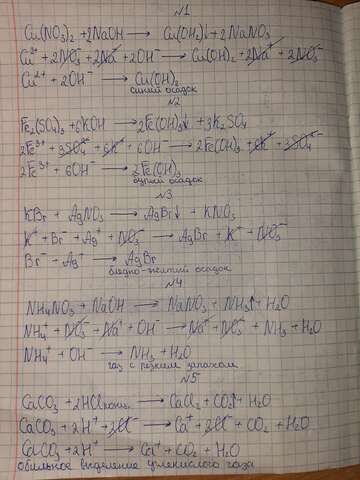 №1
Cu(NO₃)₂ + 2NaOH → Cu(OH)₂↓ + 2NaNO₃
Cu²⁺ + 2NO₃⁻ + 2Na⁺ + 2OH⁻ → Cu(OH)₂ + 2Na⁺ + 2NO₃⁻
Cu²⁺ + 2OH⁻ → Cu(OH)₂
синий осадок
№2
Fe₂(SO₄)₃ + 6KOH → 2Fe(OH)₃↓ + 3K₂SO₄
2Fe³⁺ + 3SO₄²⁻ + 6K⁺ + 6OH⁻ → 2Fe(OH)₃ + 6K⁺ + 3SO₄²⁻
2Fe³⁺ + 6OH⁻ → 2Fe(OH)₃
бурый осадок
№3
KBr + AgNO₃ → AgBr↓ + KNO₃
K⁺ + Br⁻ + Ag⁺ + NO₃⁻ → AgBr + K⁺ + NO₃⁻
Br⁻ + Ag⁺ → AgBr
бледно-жёлтый осадок
№4
NH₄NO₃ + NaOH → NaNO₃ + NH₃↑ + H₂O
NH₄⁺ + NO₃⁻ + Na⁺ + OH⁻ → Na⁺ + NO₃⁻ + NH₃ + H₂O
NH₄⁺ + OH⁻ → NH₃ + H₂O
газ с резким запахом
№5
CaCO₃ + 2HCl → CaCl₂ + CO₂↑ + H₂O
CaCO₃ + 2H⁺ + 2Cl⁻ → Ca⁺ + 2Cl⁻ + CO₂ + H₂O
CaCO₃ + 2H⁺ → Ca⁺ + CO₂ + H₂O
обильное выделение углекислого газа